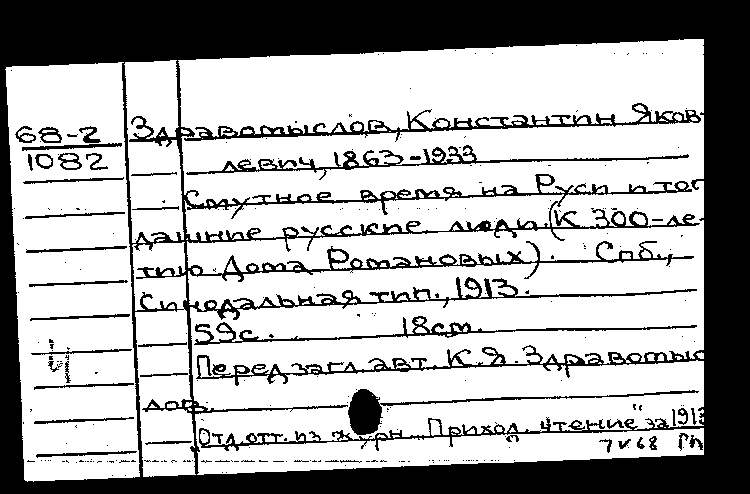 68-2
1082
Здравомыслов, Константин Яков-
левич, 1863-1933
Смутное время на Руси и тог
дашние русские люди. (К 300-ле-
тию Дома Романовых). Спб.,
Синодальная тип., 1913.
59с. 18см.
Перед загл. авт. К.Я. Здравомыс
лов.
Отд. отт. из журн. "Приход. чтение" за 1913
7 V 68